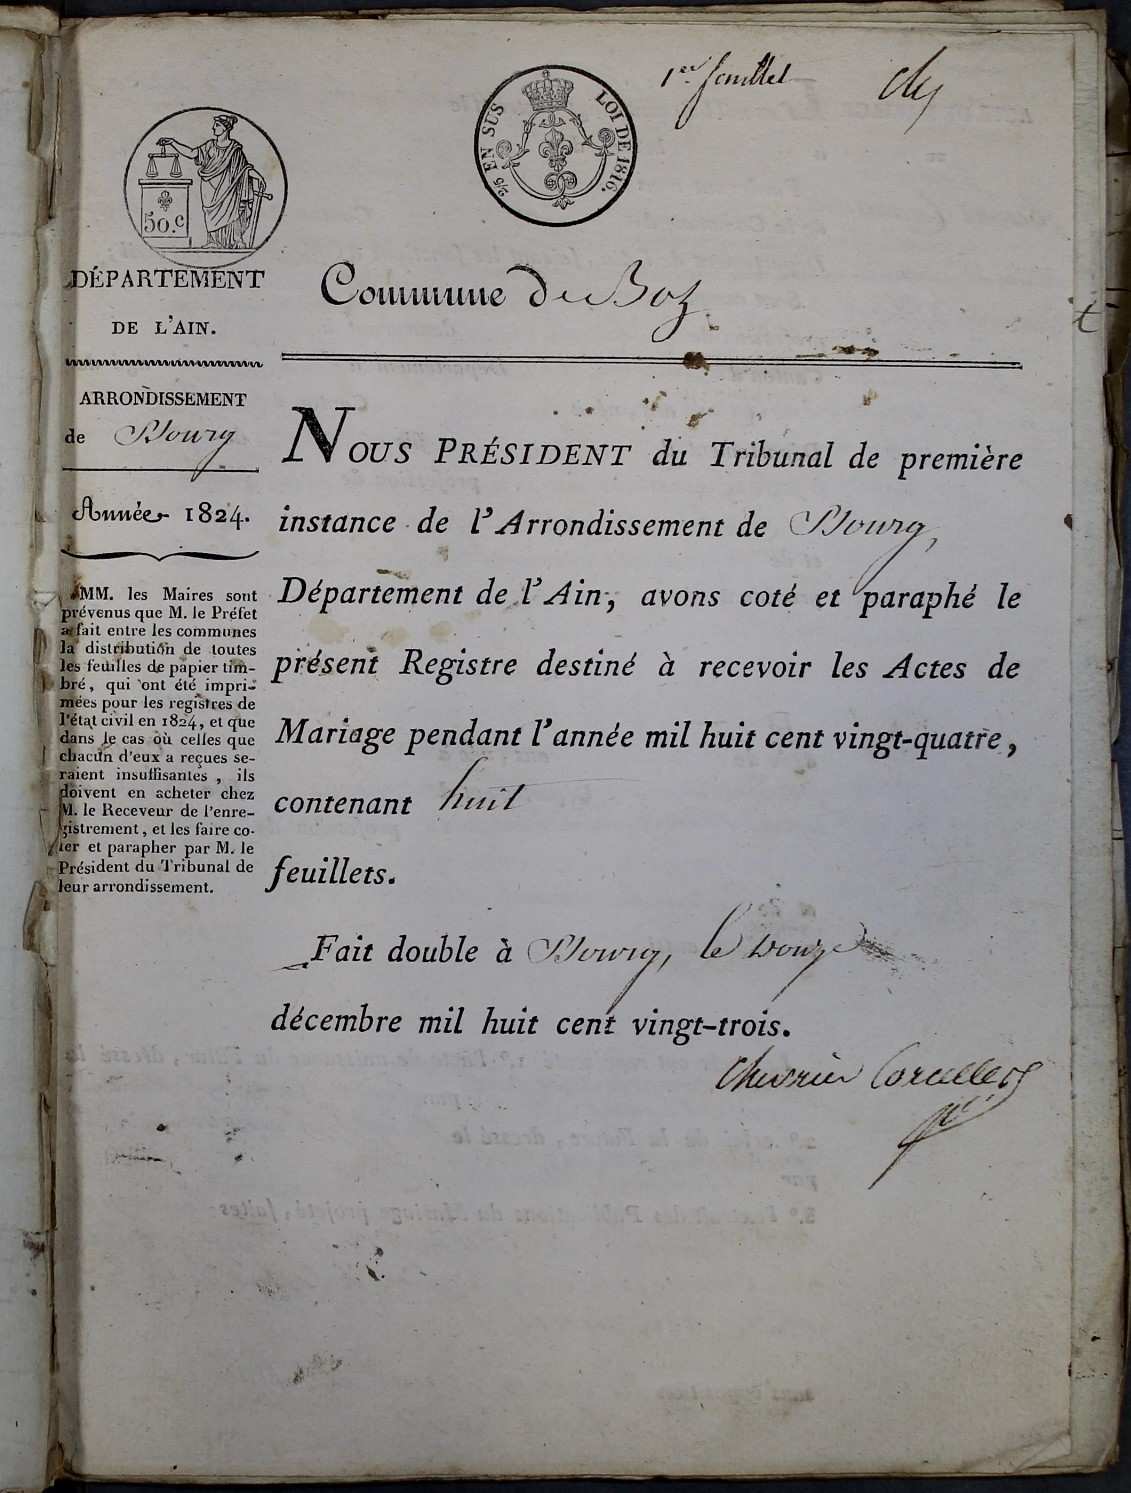 1er feuillet
2/5 EN SUS
LOI DE 1816.
50.c
DÉPARTEMENT
DE L'AIN.
Commune de Boz
ARRONDISSEMENT
de Bourg
Année 1824.
MM. les Maires sont
prévenus que M. le Préfet
a fait entre les communes
la distribution de toutes
les feuilles de papier tim-
bré, qui ont été impri-
mées pour les registres de
l'état civil en 1824, et que
dans le cas où celles que
chacun d'eux a reçues se-
raient insuffisantes, ils
doivent en acheter chez
M. le Receveur de l'enre-
gistrement, et les faire co-
ter et parapher par M. le
Président du Tribunal de
leur arrondissement.
NOUS PRÉSIDENT du Tribunal de première
instance de l'Arrondissement de Bourg,
Département de l'Ain, avons coté et paraphé le
présent Registre destiné à recevoir les Actes de
Mariage pendant l'année mil huit cent vingt-quatre,
contenant huit
feuillets.
Fait double à Bourg, le douze
décembre mil huit cent vingt-trois.
Chevrier Corcelles